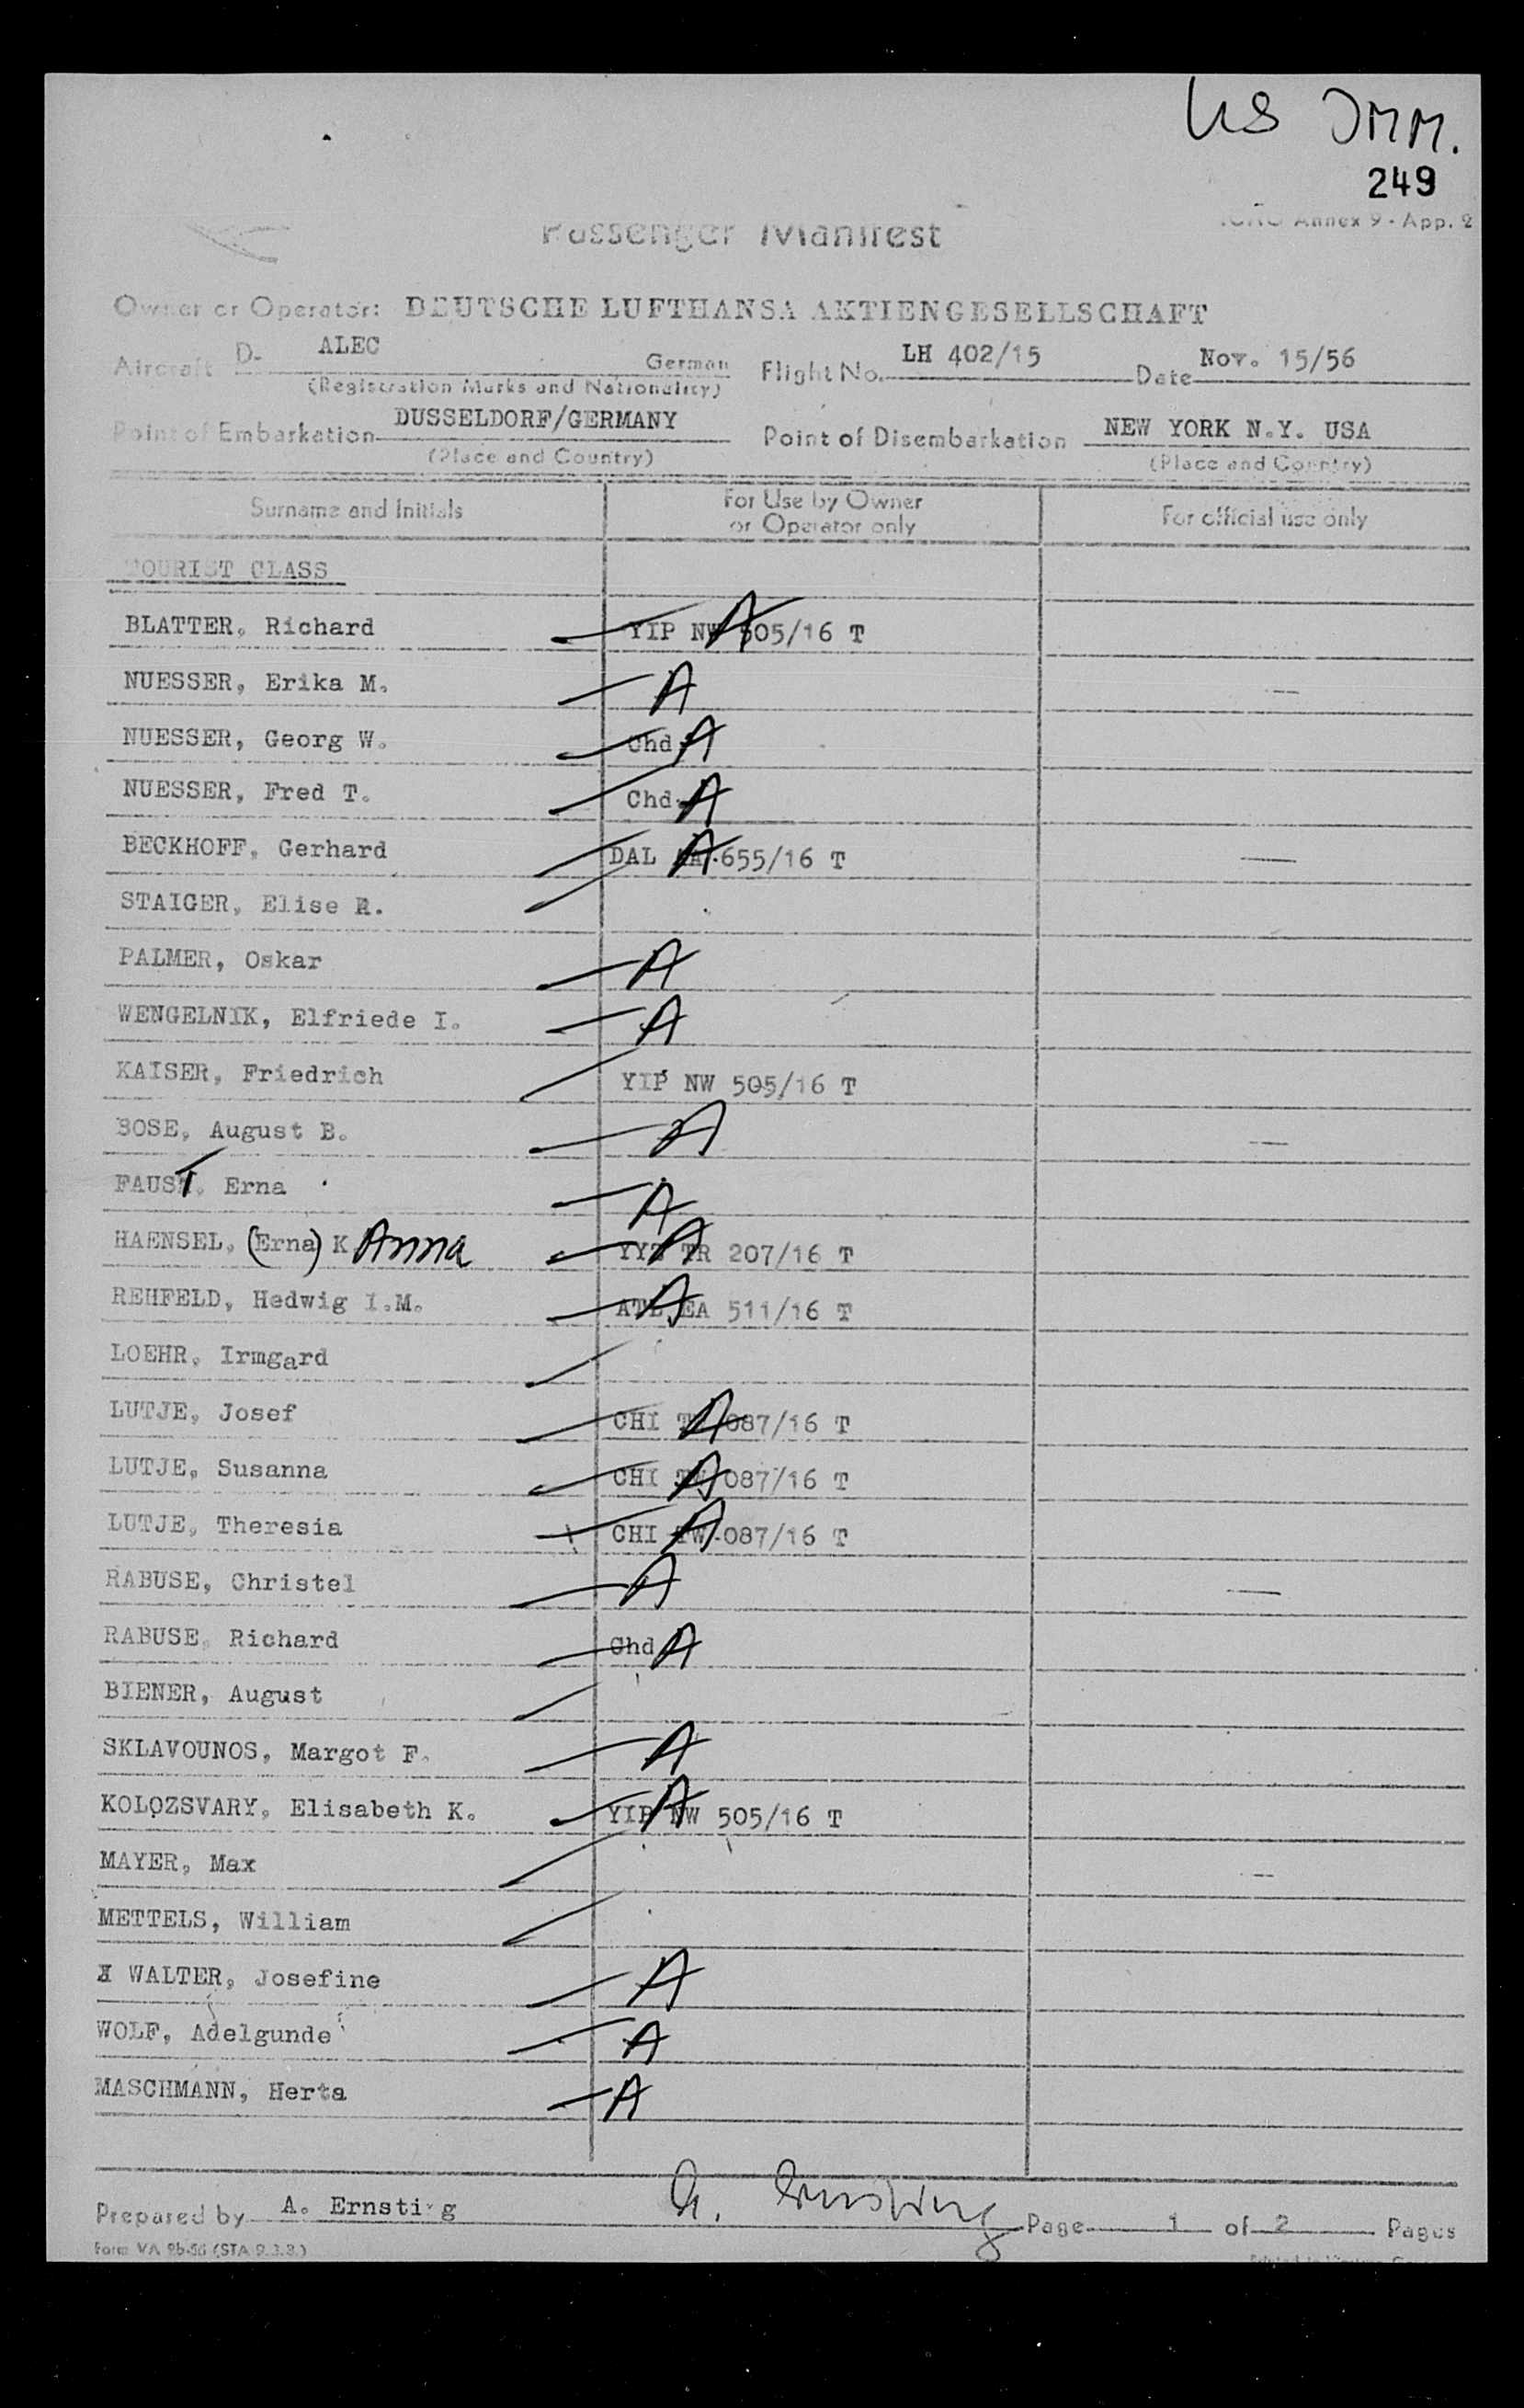 US IMM.
249
ICAO Annex 9 - App. 2
Passenger Manifest
Owner or Operator: DEUTSCHE LUFTHANSA AKTIENGESELLSCHAFT
Aircraft D- ALEC German Flight No. LH 402/15 Date Nov. 15/56
(Registration Marks and Nationality)
Point of Embarkation DUSSELDORF/GERMANY Point of Disembarkation NEW YORK N.Y. USA
(Place and Country) (Place and Country)
Surname and Initials For Use by Owner or Operator only For official use only
TOURIST CLASS
BLATTER, Richard YIP NW 505/16 T A
NUESSER, Erika M. A —
NUESSER, Georg W. Chd A
NUESSER, Fred T. Chd A
BECKHOFF, Gerhard DAL AA 655/16 T A —
STAIGER, Elise R.
PALMER, Oskar A
WENGELNIK, Elfriede I. A
KAISER, Friedrich YIP NW 505/16 T
BOSE, August B. A —
FAUST, Erna A
HAENSEL, (Erna) K Anna YYZ TR 207/16 T A
REHFELD, Hedwig I.M. ATL EA 511/16 T A
LOEHR, Irmgard
LUTJE, Josef CHI TW 087/16 T A
LUTJE, Susanna CHI TW 087/16 T A
LUTJE, Theresia CHI TW 087/16 T A
RABUSE, Christel A —
RABUSE, Richard Chd A
BIENER, August
SKLAVOUNOS, Margot F. A
KOLOZSVARY, Elisabeth K. YIP NW 505/16 T A
MAYER, Max —
METTELS, William
WALTER, Josefine A
WOLF, Adelgunde A
MASCHMANN, Herta A
Prepared by A. Ernsting A. Ernsting Page 1 of 2 Pages
Form VA 9b-56 (STA 9.3.8.)